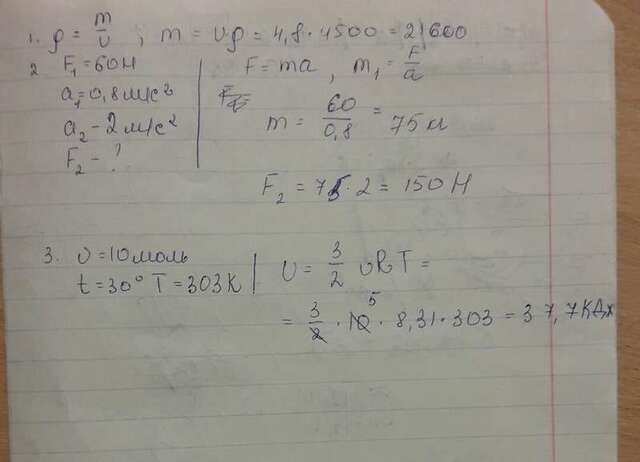 1. ρ = m/υ ; m = υρ = 4,8 · 4500 = 21600
2 F₁ = 60Н
a₁ = 0,8 м/с²
a₂ - 2 м/с²
F₂ - ?
F = ma , m₁ = F/a
m = 60/0,8 = 75 кг
F₂ = 75 · 2 = 150 Н
3. υ = 10 моль
t = 30° T = 303К
U = 3/2 υRT =
= 3/2 · 10 5 · 8,31 · 303 = 37,7 КДж